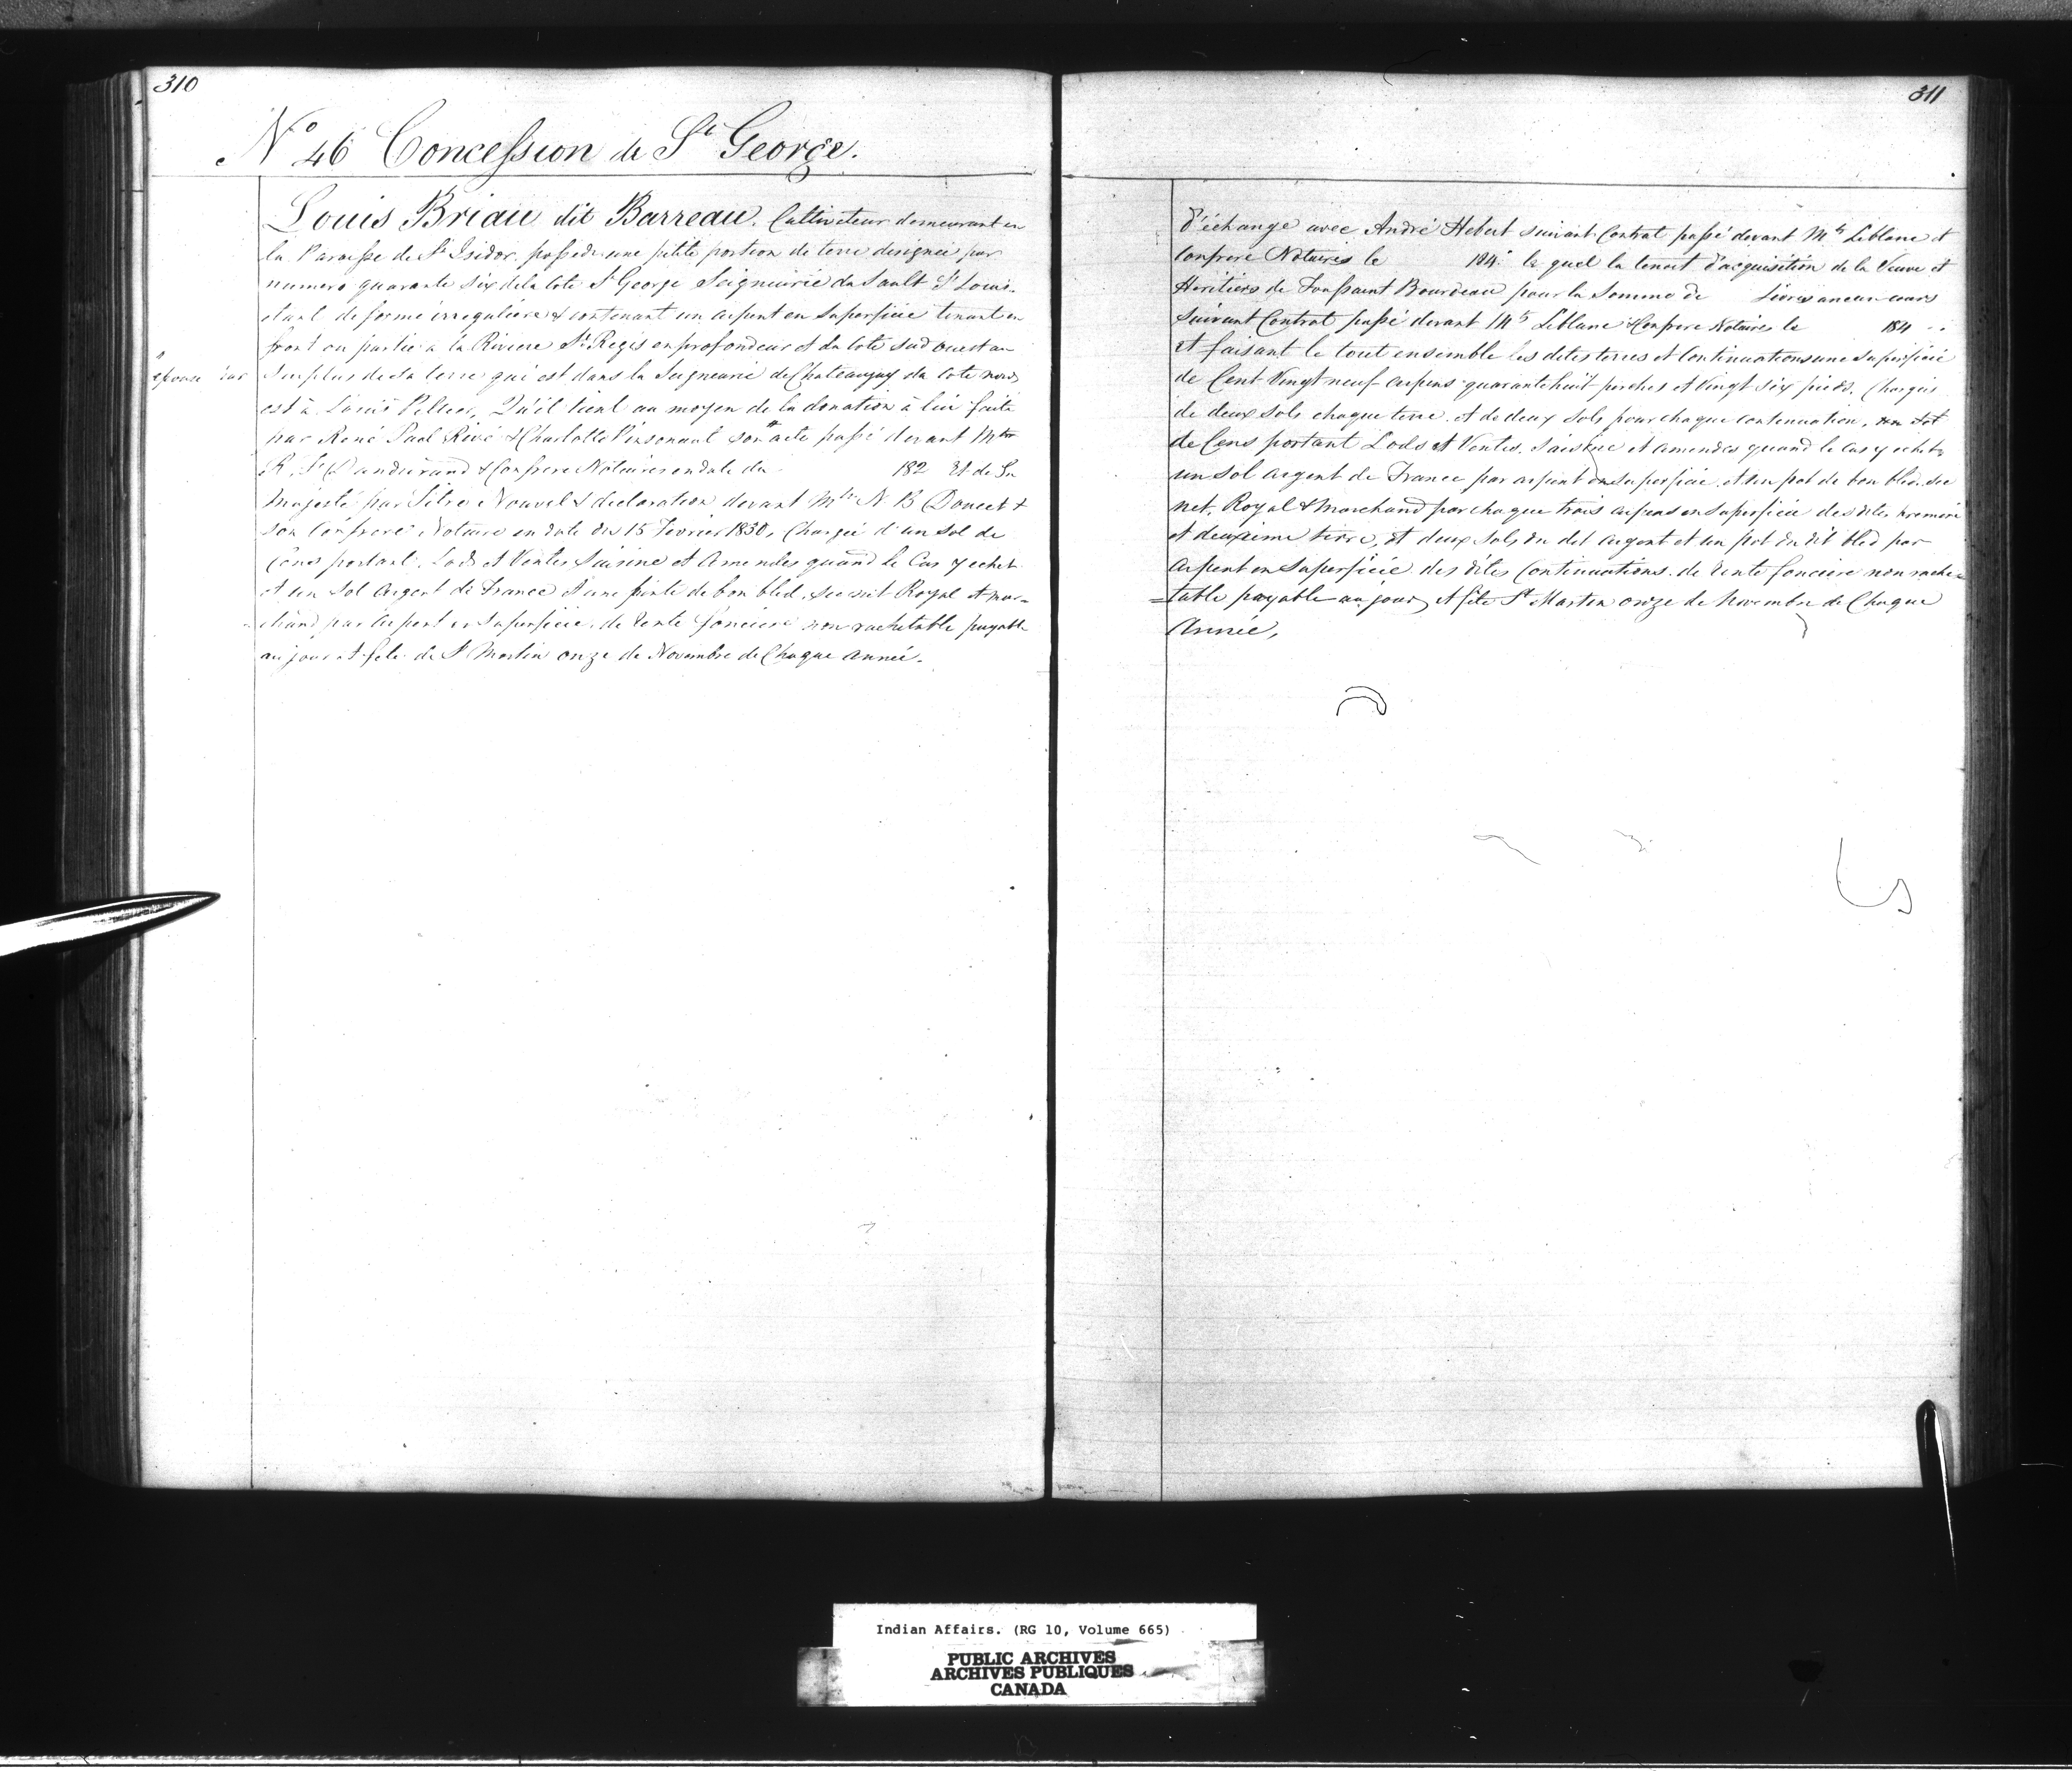 310
N° 46 Concession de St George.
Louis Briau dit Barreau. Cultivateur demeurant en
la Paroisse de St Isidor, possede une petite portion de terre designée par
numero quarante six de la Cote St George Seigneurie du Sault St Louis.
etant de forme irreguliere & contenant un arpent en superficie tenant en
front en partie a la Riviere St Regis en profondeur et du Coté sud ouest au
epouse par
Surplus de sa terre qui est dans la Seigneurie de Chateauguay du Coté nord
est à Louis Peltier, Qu'il tient au moyen de la donation à lui faite
par René Paul Rivé & Charlotte Pinsonaut son acte passé devant Mtre
R. F. Dandurand & Confrere Notaires en date du 182 Et de Sa
Majesté par Titre Nouvel & declaration devant Mtre N. B Doucet &
son Confrere Notaire en date du 15 Fevrier 1830, Chargée d'un Sol de
Cens portant Lods et Ventes Saisine et Amendes quand le Cas y echet
et un Sol Argent de France et une pinte de bon bled, sec net Royal et mar=
=chand par Arpent en Superficie, de Rente fonciere non rachetable payable
au jour et fete de St Martin onze de Novembre de Chaque Année.
311
d'échange avec André Hebert suivant Contrat passé devant Mts Leblanc et
Confrere Notaires le 184 le quel la tenoit d'acquisition de la Veuve et
Heritiers de Toussaint Bourdeau pour la Somme de Livres ancien cours
Suivant Contrat passé devant Mts Leblanc & Confrere Notaires le 184
et faisant le tout ensemble les dites terres et Continuations une Superficie
de Cent Vingt neuf arpens quarante huit perches et Vingt six pieds. Chargées
de deux sols chaque terre et de deux Sols pour chaque continuation,
de Cens portant Lods et Ventes, Saisine et Amendes quand le cas y echet,
un Sol Argent de France par arpent en Superficie et un pot de bon bled sec
net, Royal & Marchand par chaque trois arpens en Superficie des dites premiere
et deuxieme terre, et deux Sols du dit argent et un pot du dit bled par
Arpent en Superficie des dites Continuations de Rente fonciere non rache=
=table payable au jour et fete St Martin onze de Novembre de Chaque
Année,
Indian Affairs. (RG 10, Volume 665)
PUBLIC ARCHIVES
ARCHIVES PUBLIQUES
CANADA